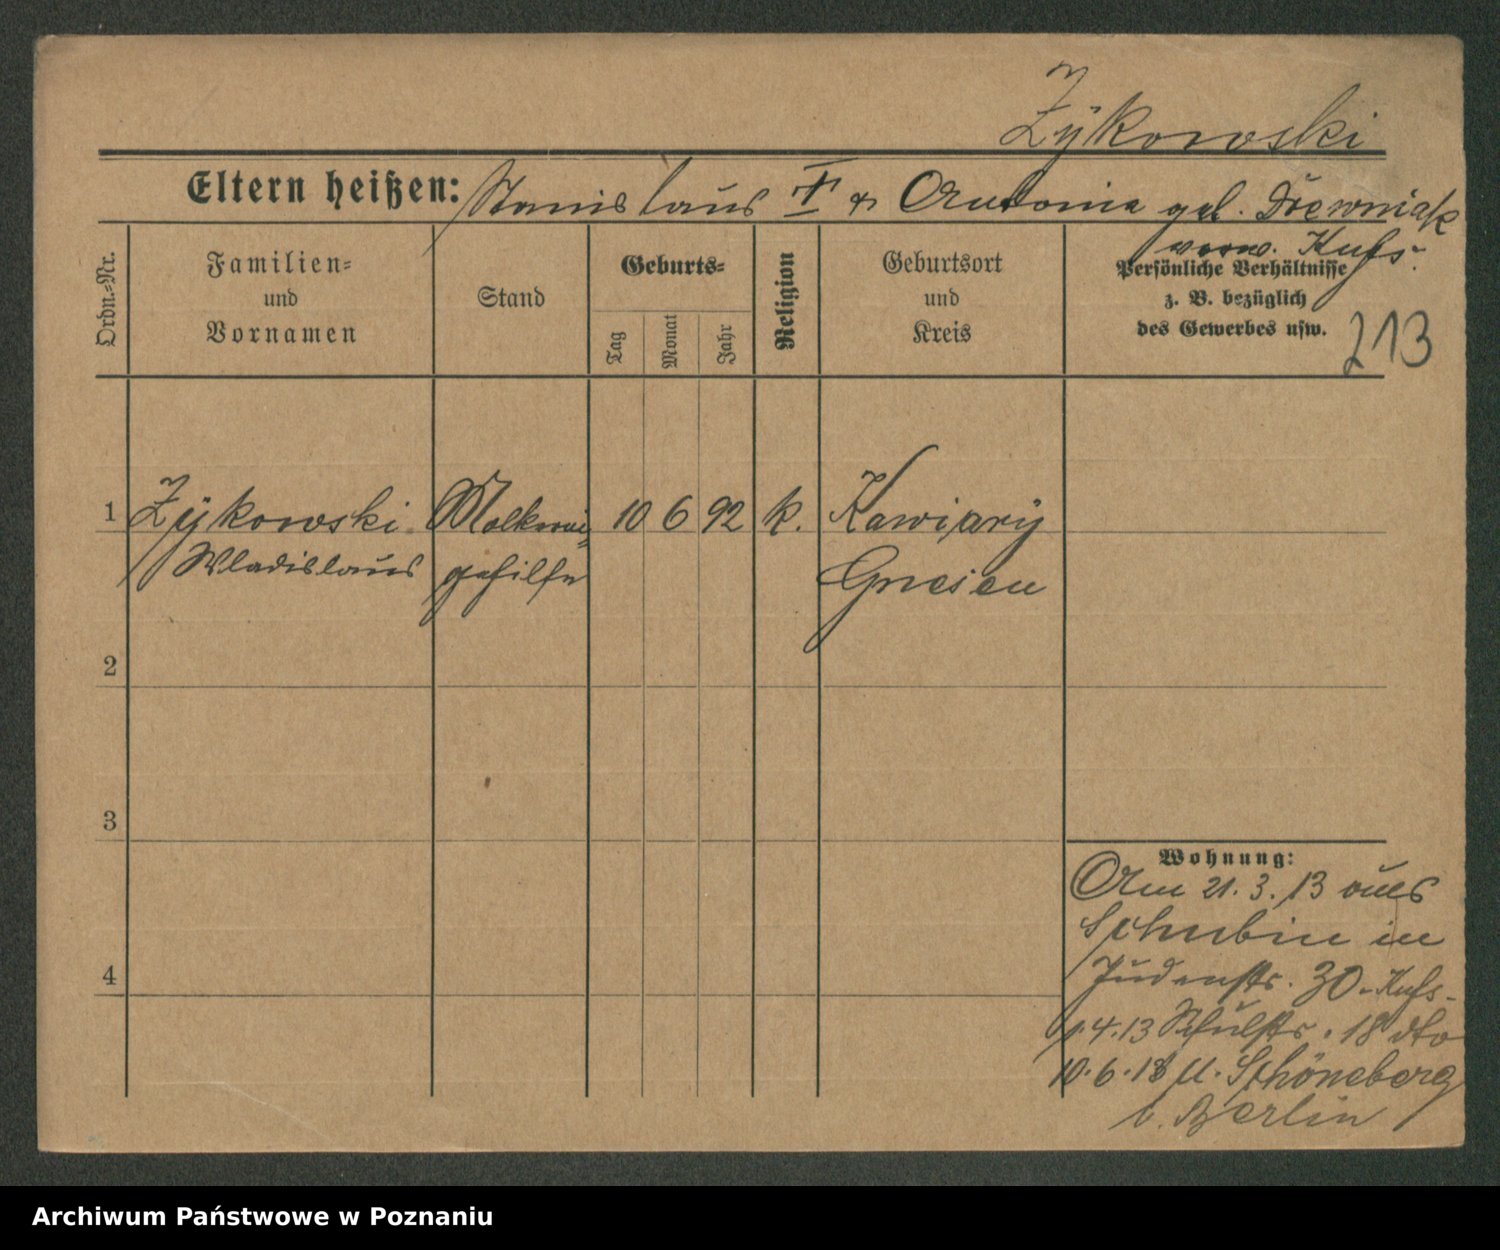 Zÿkowski
Eltern heißen: Stanislaus † & Antonia geb. Drewniak
verw. Kufs.
Ordn.-Nr.
Familien-
und
Vornamen
Stand
Geburts-
Tag
Monat
Jahr
Religion
Geburtsort
und
Kreis
Persönliche Verhältnisse
z. B. bezüglich
des Gewerbes usw.
213
1 Zÿkowski Molkerei= 10 6 92 k. Kawiarÿ
Wladislaus gehilfe Gnesen
2
3
4
Wohnung:
Am 21. 3. 13 aus
Schubin in
Judenstr. 30 - Kufs-
1.4.13 Schulstr. 18 dto
10.6.18 n. Schöneberg
b. Berlin
Archiwum Państwowe w Poznaniu